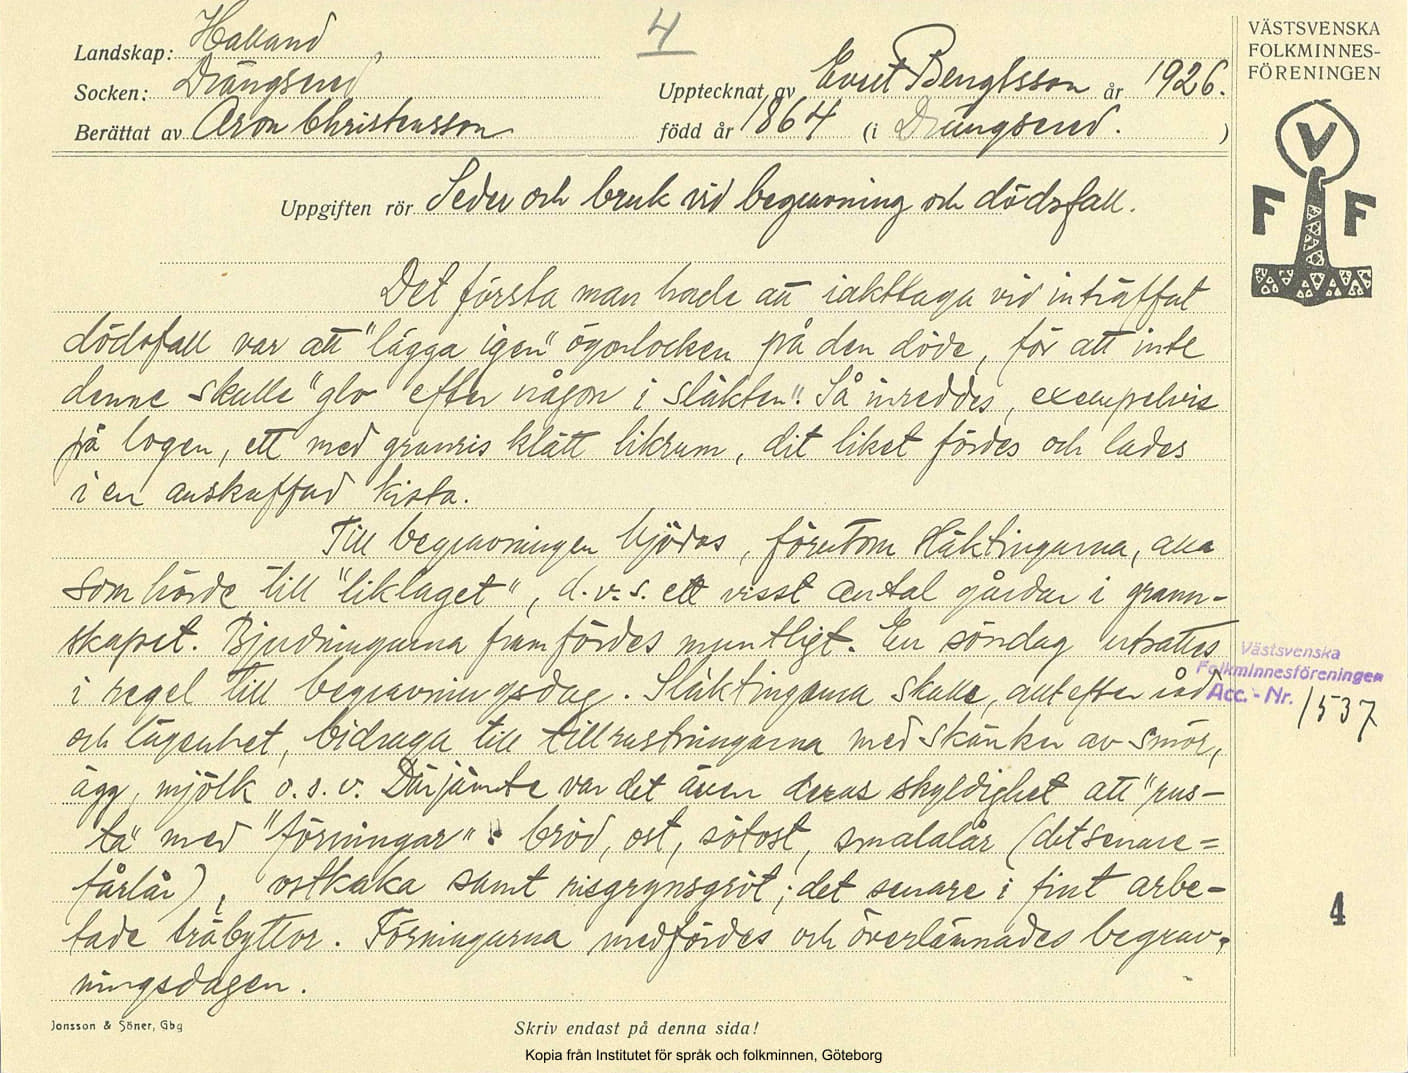 4
Landskap: Halland
Socken: Drängsered
Berättat av Aron Christensson
Upptecknat av Evert Bengtsson år 1926.
född år 1864 (i Drängsered. )
VÄSTSVENSKA
FOLKMINNES-
FÖRENINGEN
V
F F
Uppgiften rör Seder och bruk vid begravning och dödsfall.
Det första man hade att iakttaga vid inträffat
dödsfall var att "lägga igen" ögonlocken på den döde, för att inte
denne skulle "glo efter någon i släkten". Så inreddes, exempelvis
på logen, ett med granris klätt likrum, dit liket fördes och lades
i en anskaffad kista.
Till begravningen bjödos, förutom släktingarna, alla
som hörde till "liklaget", d.v.s. ett visst antal gårdar i grann-
skapet. Bjudningarna framfördes muntligt. En söndag utsattes
i regel till begravningsdag. Släktingarna skulle, allt efter råd
och lägenhet, bidraga till tillrustningarna med skänker av smör,
ägg, mjölk o.s.v. Därjämte var det även deras skyldighet att "rus-
ta" med "förningar": bröd, ost, sötost, smalalår (det senare =
fårlår), ostkaka samt risgrynsgröt; det senare i fint arbe-
tade träbyttor. Förningarna medfördes och överlämnades begrav-
ningsdagen.
Västsvenska
Folkminnesföreningen
Acc.-Nr. 1537
4
Jonsson & Söner, Gbg
Skriv endast på denna sida!
Kopia från Institutet för språk och folkminnen, Göteborg